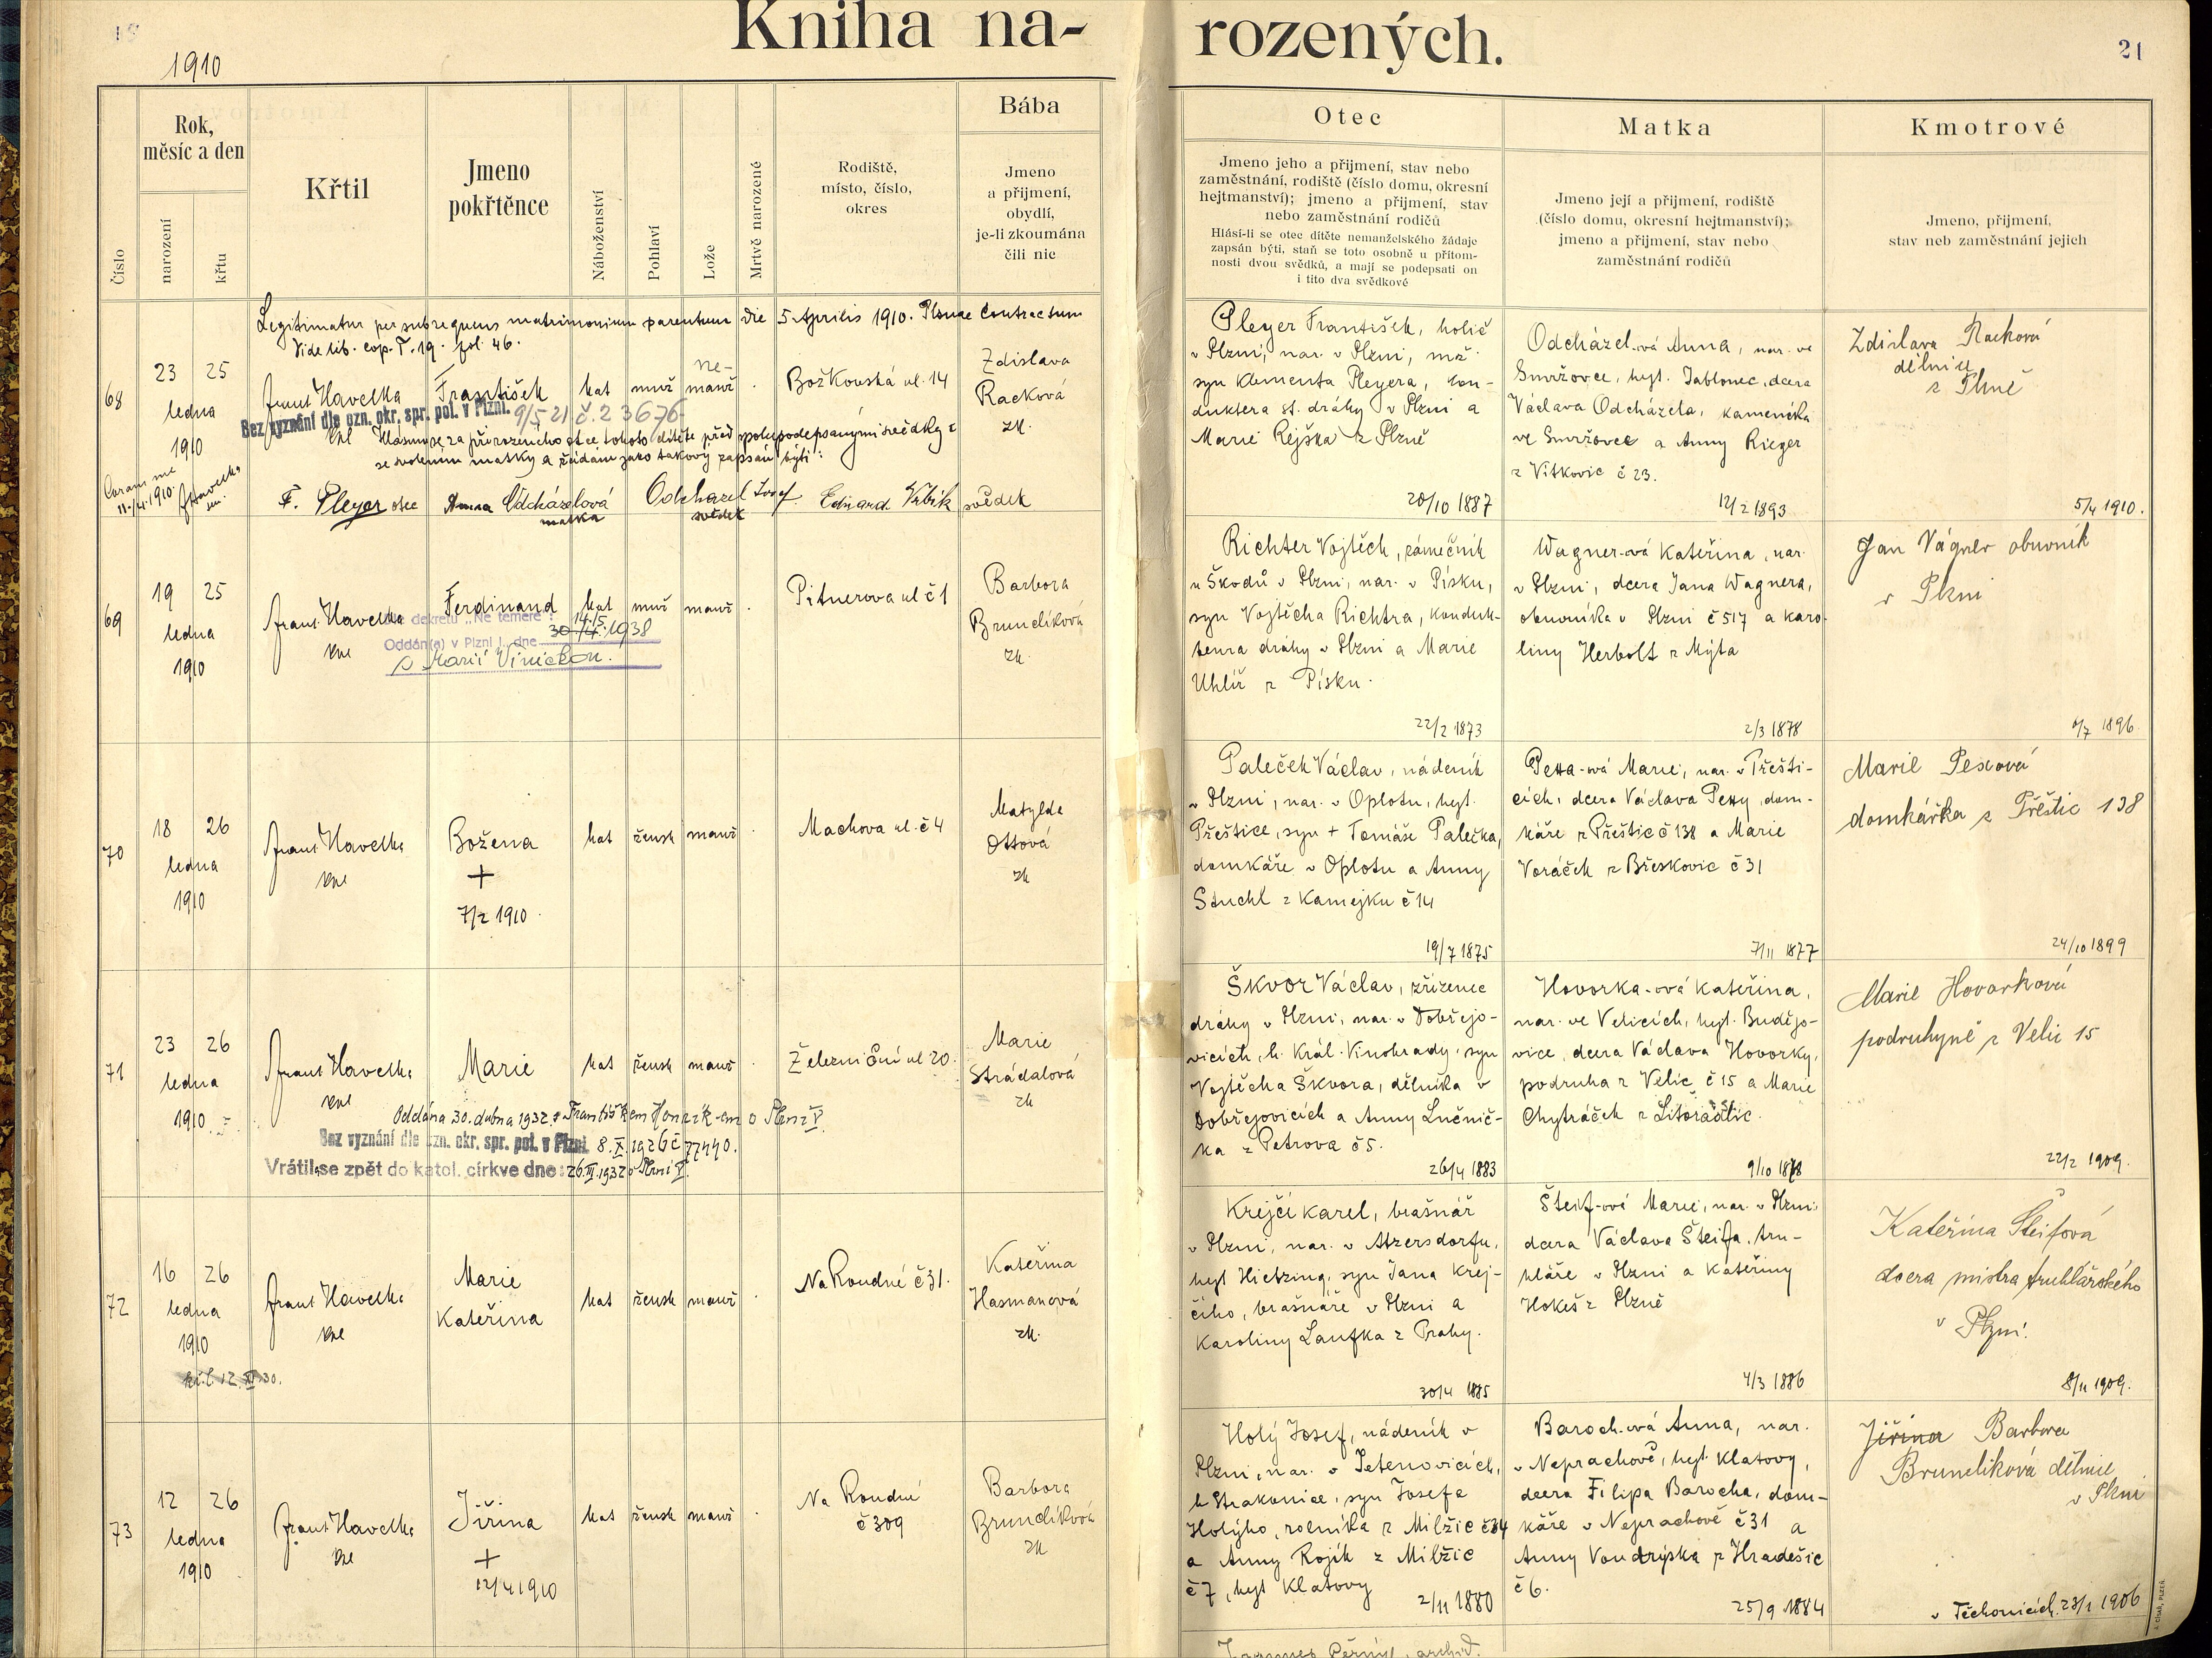 Kniha na-
rozených.
1910
21
Číslo
Rok,
měsíc a den
narození
křtu
Křtil
Jmeno
pokřtěnce
Náboženství
Pohlaví
Lože
Mrtvě narozené
Rodiště,
místo, číslo,
okres
Bába
Jmeno
a přijmení,
obydlí,
je-li zkoumána
čili nic
Otec
Jmeno jeho a přijmení, stav nebo
zaměstnání, rodiště (číslo domu, okresní
hejtmanství); jmeno a přijmení, stav
nebo zaměstnání rodičů
Hlásí-li se otec dítěte nemanželského žádaje
zapsán býti, staň se toto osobně u přítom-
nosti dvou svědků, a mají se podepsati on
i tito dva svědkové
Matka
Jmeno její a přijmení, rodiště
(číslo domu, okresní hejtmanství);
jmeno a přijmení, stav nebo
zaměstnání rodičů
Kmotrové
Jmeno, přijmení,
stav neb zaměstnání jejich
Legitimatur per subsequens matrimonium parentum die 5 Aprilis 1910. Plsnae contractum
Vide lib. cop. T. 19. fol. 46.
68
23 25
ledna
1910
Frant Havelka
František
kat
muž
ne-
manž
Božkovská ul. 14
Zdislava
Racková
zk.
Bez vyznání dle ozn. okr. spr. pol. v Plzni. 9/5 21 č. 23676
Hlásím se za přirozeného otce tohoto dítěte před spolupodepsanými svědky
se svolením matky a žádám jako takový zapsán býti:
Coram me
11./4. 1910.
F. Pleyer otec
Anna Odcházelová
matka
Odcházel Josef
svědek
Eduard Vrbík svědek
Pleyer František, holič
v Plzni, nar. v Plzni, mž.
syn Klementa Pleyera, kon-
duktera st. dráhy v Plzni a
Marie Rejška z Plzně
20/10 1887
Odcházel-ová Anna, nar. ve
Smržovce, hejt. Jablonec, dcera
Václava Odcházela, kameníka
ve Smržovce a Anny Rieger
z Vítkovic č 23.
12/2 1893
Zdislava Racková
dělnice
z Plzně
5/4 1910.
69
19 25
ledna
1910
Frant Havelka
Ferdinand
kat
muž
manž
Pitnerova ul č 1
Barbora
Brunclíková
zk.
dle dekretu „Ne temere":
14. 5.
Oddán(a) v Plzni I., dne 30. 4. 1938
s Marií
Richter Vojtěch, zámečník
u Škodů v Plzni, nar. v Písku,
syn Vojtěcha Richtra, konduk-
teura dráhy v Plzni a Marie
Uhlíř z Písku.
22/2 1873
Wagner-ová Kateřina, nar.
v Plzni, dcera Jana Wagnera,
obuvníka v Plzni č 517 a Karo-
liny Herbolt z Mýta
2/3 1878
Jan Vágner obuvník
v Plzni
1896
70
18 26
ledna
1910
Frant Havelka
Božena
+
7/2 1910.
kat
žensk
manž
Machova ul. č 4
Matylda
Ottová
zk
Paleček Václav, nádeník
v Plzni, nar. v Oplotu, hejt.
Přeštice, syn + Tomáše Palečka,
domkáře v Oplotu a Anny
Stuchl z Kamejku č 14
19/7 1875
Pexa-ová Marie, nar. v Přešti-
cích, dcera Václava Pexy, dom-
káře z Přeštic č 138 a Marie
Voráček z Břeskovic č 31
7/11 1877
Marie Pexová
domkářka z Přeštic 138
24/10 1899
71
23 26
ledna
1910
Frant Havelka
Marie
kat
žensk
manž
Železniční ul 20.
Marie
Strádalová
zk
Oddána 30. dubna 1932 s Františkem v Plzni V.
Bez vyznání dle ozn. okr. spr. pol. v Plzni. 8. X. 1926 č 77440.
Vrátil se zpět do katol. církve dne: 26. III. 1932 v Plzni V.
Škvor Václav, zřízenec
dráhy v Plzni, nar. v Dobřejo-
vicích, h. Král. Vinohrady, syn
Vojtěcha Škvora, dělníka v
Dobřejovicích a Anny Lučnič-
ka z Petrova č 5.
26/4 1883
Hovorka-ová Kateřina,
nar. ve Velicích, hejt. Budějo-
vice, dcera Václava Hovorky,
podruha z Velic č 15 a Marie
Chytráček z Litoradlic.
9/10 1878
Marie Hovorková
podruhyně z Velic 15
22/2 1909.
72
16 26
ledna
1910
Frant Havelka
Marie
Kateřina
kat
žensk
manž
Na Roudné č 31.
Kateřina
Hasmanová
zk.
12. XI. 30.
Krejčí Karel, brašnář
v Plzni, nar. v Atzersdorfu,
hejt Hietzing, syn Jana Krej-
čího, brašnáře v Plzni a
Karoliny Laufka z Prahy.
30/4 1885
Šteif-ová Marie, nar. v Plzni,
dcera Václava Šteifa, tru-
hláře v Plzni a Kateřiny
Hokeš z Plzně
4/3 1886
Kateřina Šteifová
dcera mistra truhlářského
v Plzni.
8/11 1909.
73
12 26
ledna
1910
Frant Havelka
Jiřina
+
12/4 1910
kat
žensk
manž
Na Roudné
č 309
Barbora
Brunclíková
zk
Holý Josef, nádeník v
Plzni, nar. v Tetenovicích,
h Strakonice, syn Josefa
Holýho, rolníka z Milžic č 34
a Anny Rojík z Milžic
č 7, hejt Klatovy
2/11 1880
Baroch-ová Anna, nar.
v Neprachově, hejt. Klatovy,
dcera Filipa Barocha, dom-
káře v Neprachově č 31 a
Anny Voudrýska z Hradešic
č 6.
25/9 1884
Jiřina Barbora
Brunclíková dělnice
v Plzni
v Těchonicích 23/1 1906